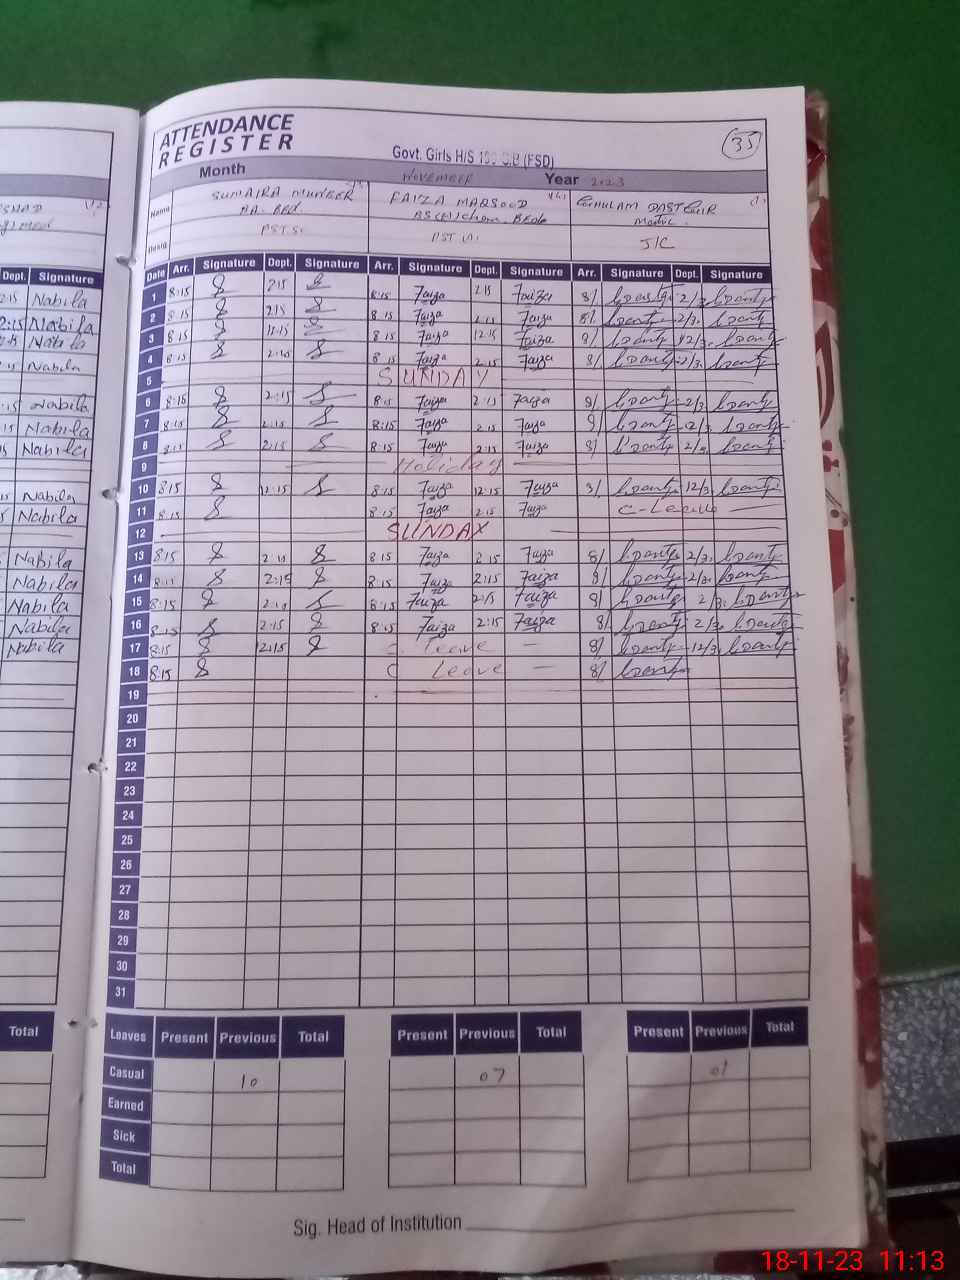 ATTENDANCE
REGISTER
35
Govt. Girls H/S G.B (FSD)
Month NOVEMBER Year 2023
Name SUMAIRA MUNEER FAIZA MAQSOOD GHULAM DASTGIR
MA. BEd. BS(H)Chem. BEd Matric
Desig. PST J/C
Dept. Signature
Date Arr. Signature Dept. Signature Arr. Signature Dept. Signature Arr. Signature Dept. Signature
2:15 Nabila
1 8:15 2:15 8:15 Faiza 2:15 Faiza 8/ 2/3
2:15 Nabila
2 8:15 2:15 8:15 Faiza 2:15 Faiza 8/ 2/3
Nabila
3 8:15 12:15 8:15 Faiza 12:15 Faiza 8/ 12/3
Nabila
4 8:15 2:15 8:15 Faiza 2:15 Faiza 8/ 2/3
5 SUNDAY
Nabila
6 8:15 2:15 8:15 Faiza 2:15 Faiza 8/ 2/3
Nabila
7 8:15 2:15 8:15 Faiza 2:15 Faiza 8/ 2/3
Nabila
8 8:15 2:15 8:15 Faiza 2:15 Faiza 8/ 2/3
9 Holiday
Nabila
10 8:15 12:15 8:15 Faiza 12:15 Faiza 8/ 12/3
Nabila
11 8:15 8:15 Faiza 2:15 Faiza C-Leave
12 SUNDAY
Nabila
13 8:15 2:15 8:15 Faiza 2:15 Faiza 8/ 2/3
Nabila
14 8:15 2:15 8:15 Faiza 2:15 Faiza 8/ 2/3
Nabila
15 8:15 2:15 8:15 Faiza 2:15 Faiza 8/ 2/3
Nabila
16 8:15 2:15 8:15 Faiza 2:15 Faiza 8/ 2/3
Nabila
17 8:15 12:15 C. leave 8/ 12/3
18 8:15 C Leave 8/
19
20
21
22
23
24
25
26
27
28
29
30
31
Total
Leaves Present Previous Total Present Previous Total Present Previous Total
Casual 10 07 01
Earned
Sick
Total
Sig. Head of Institution
18-11-23 11:13